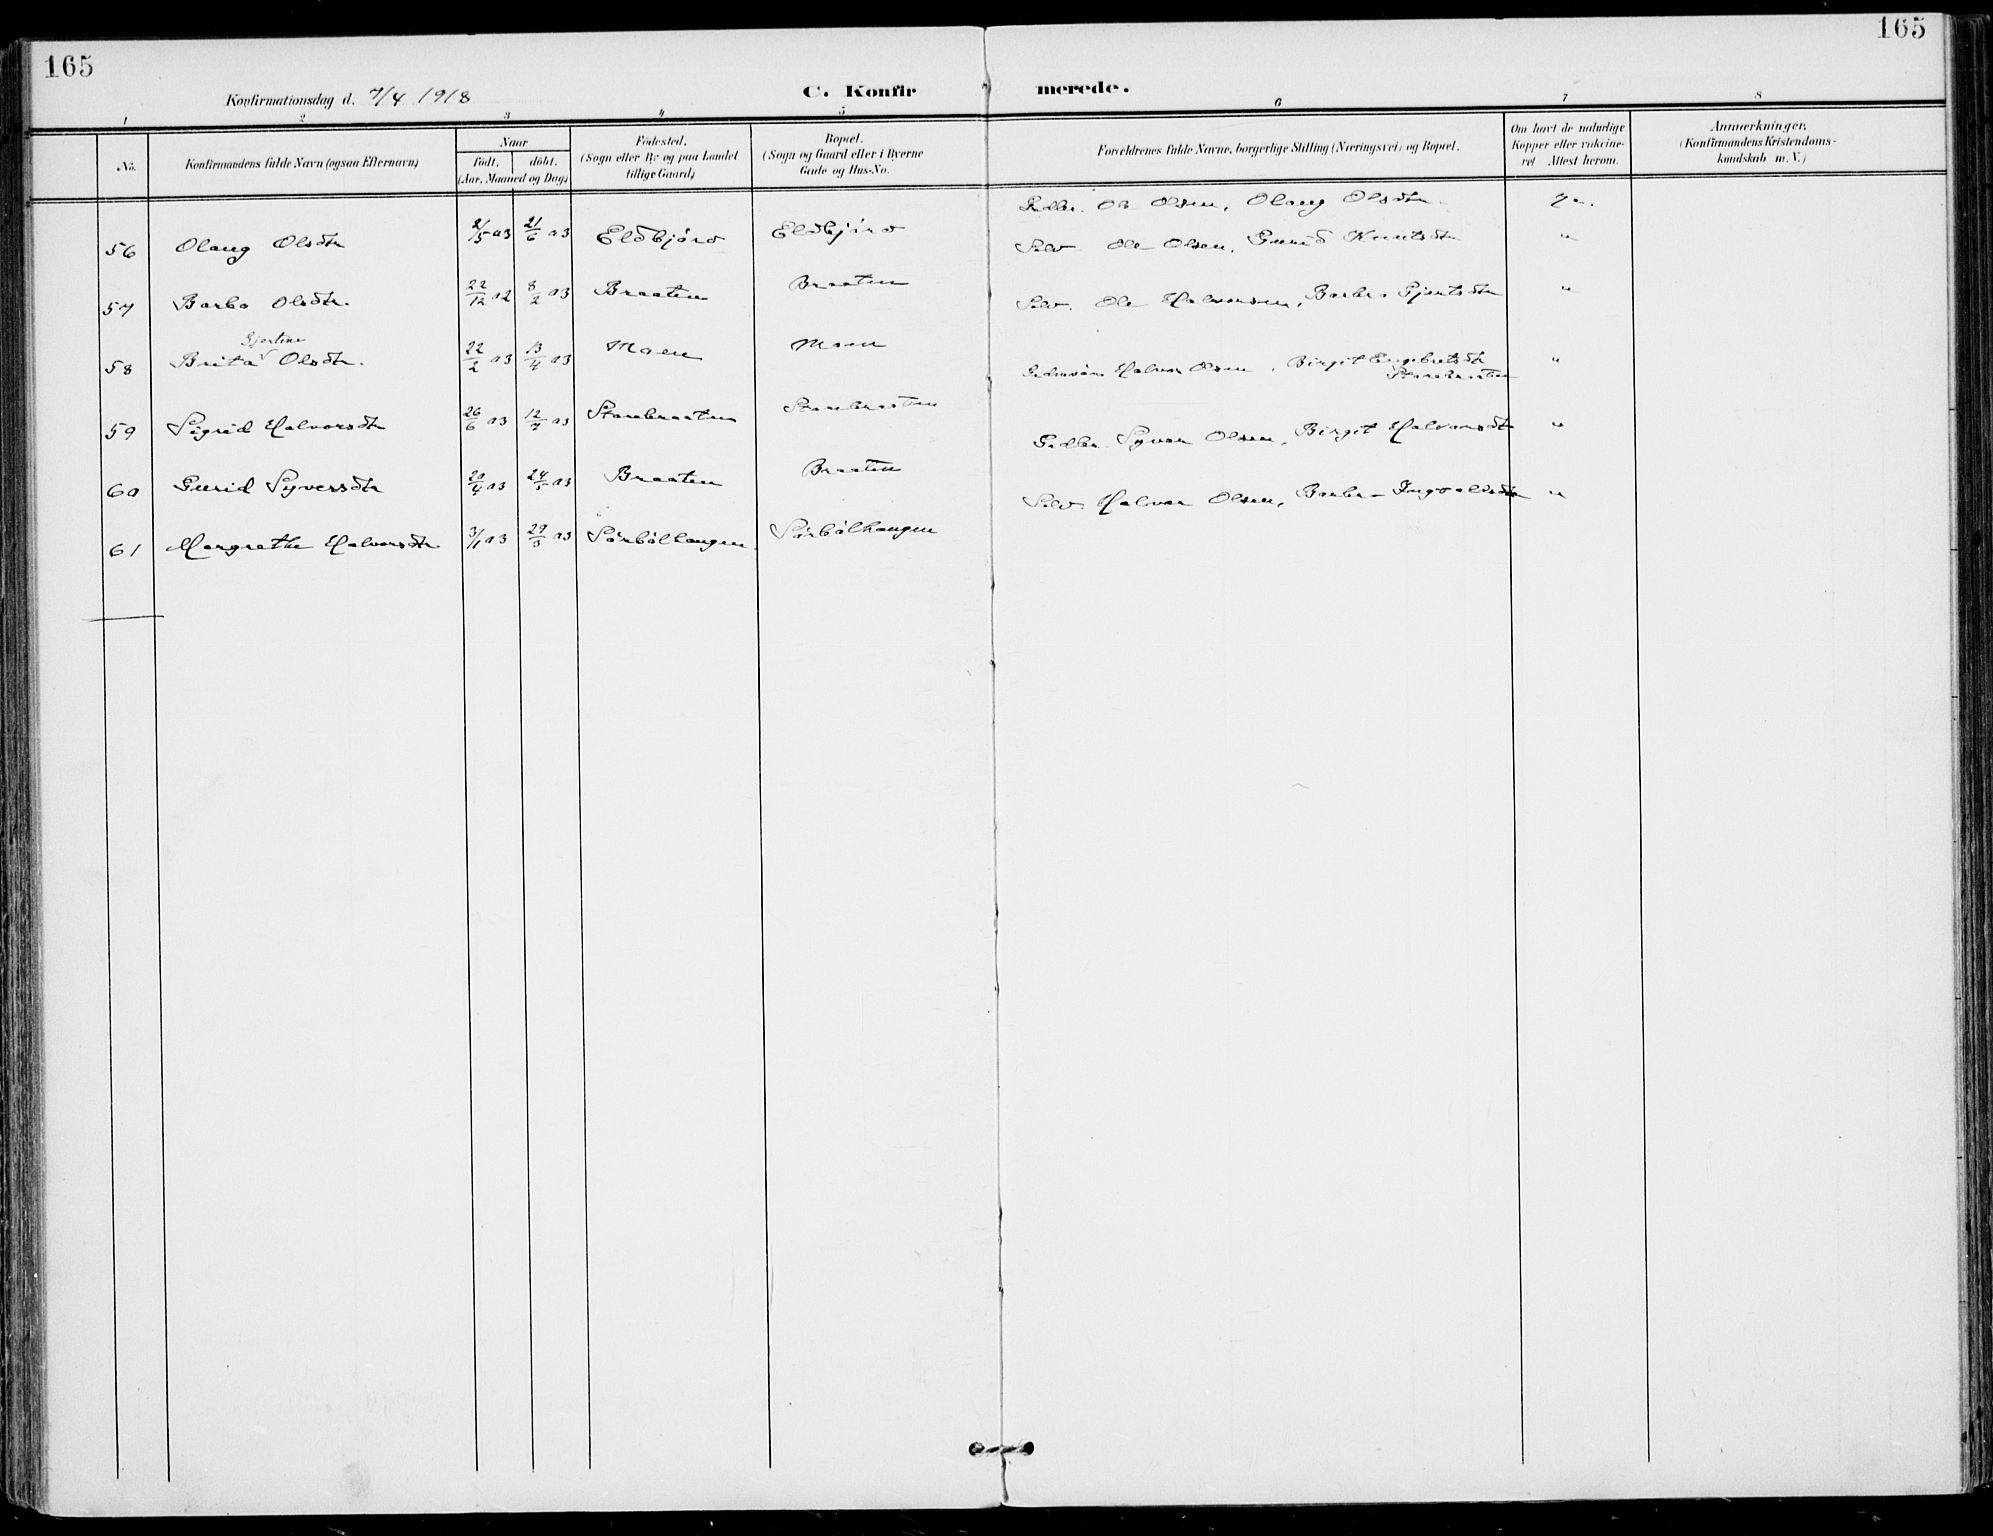 165
165
Konfirmationsdag d. 7/4 1918
C. Konfirmerede.
1 2 3 4 5 6 7 8
No.
Konfirmandens fulde Navn (ogsaa Efternavn)
Naar
födt. döbt.
(Aar, Maaned og Dag)
Födested.
(Sogn eller By og paa Landet
tillige Gaard)
Bopæl.
(Sogn og Gaard eller i Byerne
Gade og Hus-No.
Forældrenes fulde Navne, borgerlige Stilling (Næringsvei) og Bopæl.
Om havt de naturlige
Kopper eller vakcine-
ret Attest herom.
Anmærkninger.
(Konfirmandens Kristendoms-
kundskab m. V.)
56 Olaug Olsdtr 2/5 03 21/6 03 Eldbjörd Eldbjörd Gdbr. Ole Olsen, Olaug Olsdtr. Ja.
57 Barbo Olsdtr. 22/12 02 8/2 03 Braaten Braaten Selv Ole Olsen, Gurid Knutsdtr "
Gjertine
58 Brita Olsdtr. 22/2 03 13/4 03 Moen Moen Selv. Ole Halvorsen, Barbro Gjertsdtr "
59 Sigrid Halvorsdtr 26/6 03 12/7 03 Storebraaten Storebraaten Halvor Olsen, Birgit Engebretsdtr "
Storebraaten
60 Gurid Syversdtr 20/4 03 24/5 03 Braaten Braaten Gdbr. Syver Olsen, Birgit Halvorsdtr "
61 Margrethe Halvorsdtr 3/1 03 29/3 03 Sörbölhaugen. Sörbölhaugen Selv. Halvor Olsen, Barbro Ingvaldsdtr "